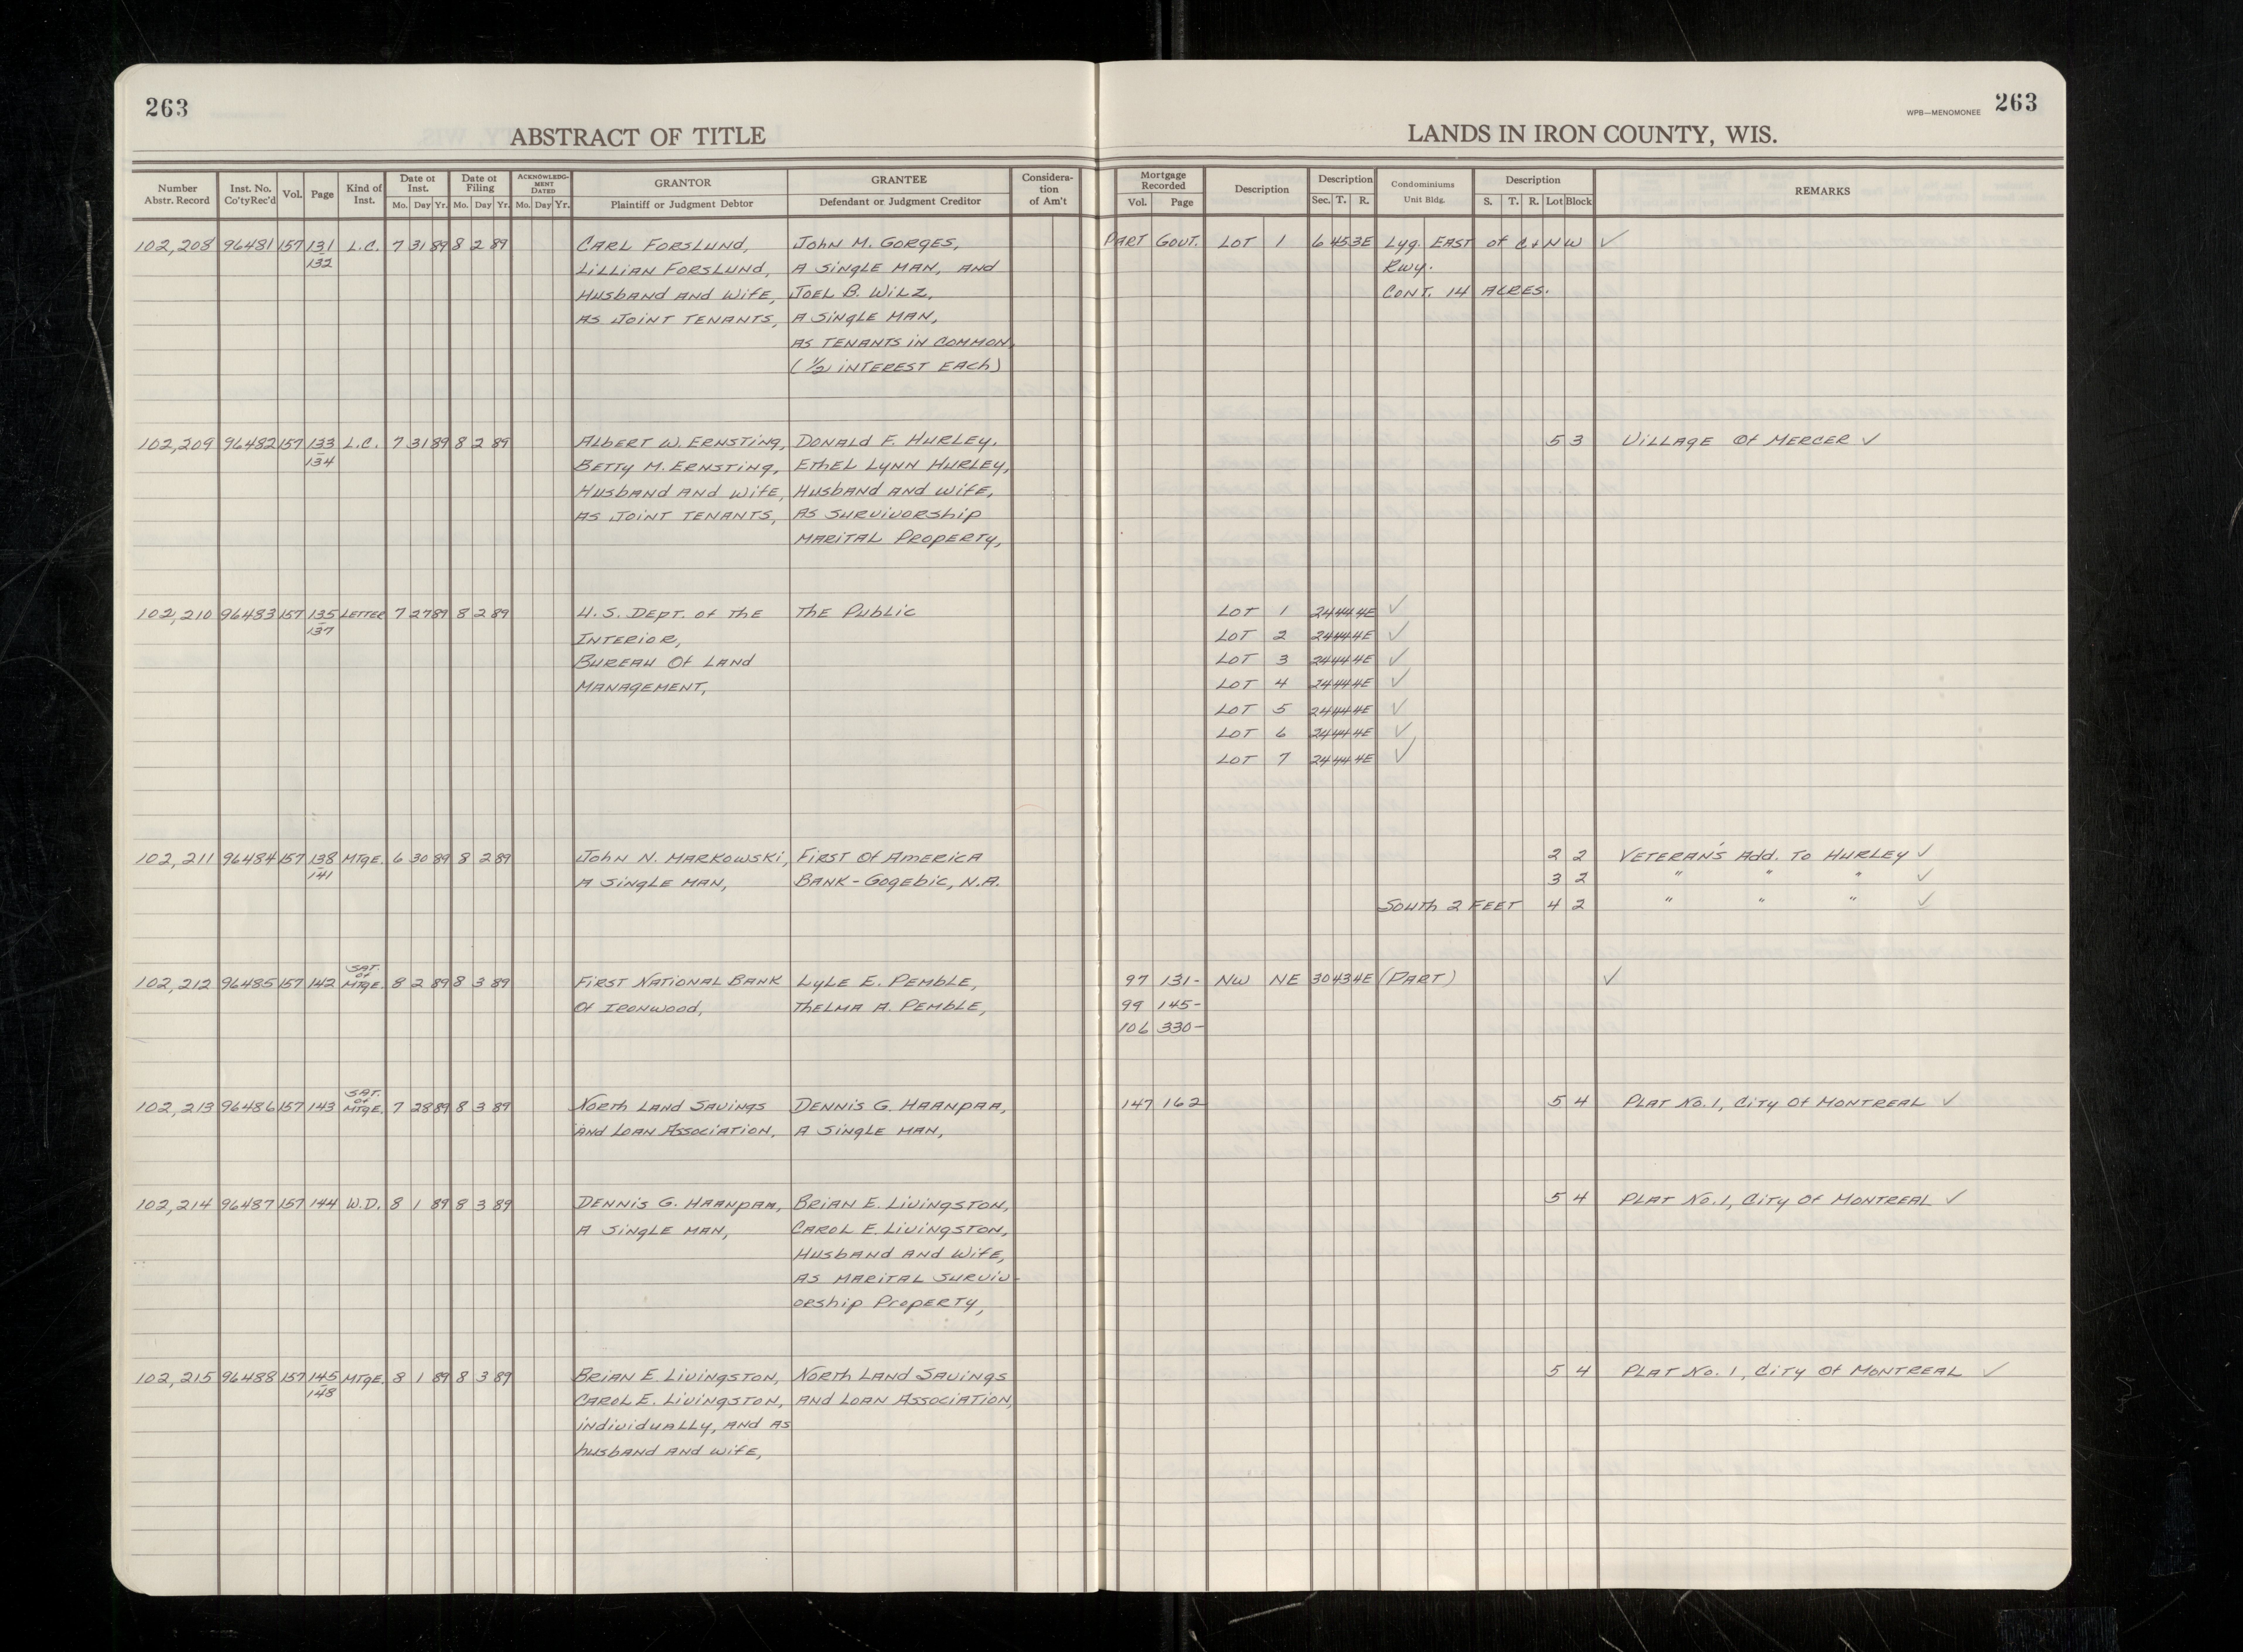 263
WPB—MENOMONEE 263
ABSTRACT OF TITLE
LANDS IN IRON COUNTY, WIS.
Number Abstr. Record | Inst. No. Co'ty Rec'd | Vol. | Page | Kind of Inst. | Date of Inst. Mo. Day Yr. | Date of Filing Mo. Day Yr. | ACKNOWLEDGMENT DATED Mo. Day Yr. | GRANTOR Plaintiff or Judgment Debtor | GRANTEE Defendant or Judgment Creditor | Consideration of Am't | Mortgage Recorded Vol. Page | Description | Description Sec. T. R. | Condominiums Unit Bldg. | Description S. T. R. Lot Block | REMARKS
102,208 96481 157 131 L.C. 7 31 89 8 2 89 CARL FORSLUND, JOHN M. GORGES, PART GOVT. LOT 1 6 45 3E Lyg. EAST of C+NW ✓
132 LILLIAN FORSLUND, A SINGLE MAN, AND Rwy.
HUSBAND AND WIFE, JOEL B. WILZ, CONT. 14 ACRES.
AS JOINT TENANTS, A SINGLE MAN,
AS TENANTS IN COMMON
(1/2 INTEREST EACH)
102,209 96482 157 133 L.C. 7 31 89 8 2 89 ALBERT W. ERNSTING, DONALD F. HURLEY, 5 3 VILLAGE OF MERCER ✓
134 BETTY M. ERNSTING, ETHEL LYNN HURLEY,
HUSBAND AND WIFE, HUSBAND AND WIFE,
AS JOINT TENANTS, AS SURVIVORSHIP
MARITAL PROPERTY,
102,210 96483 157 135 LETTER 7 27 89 8 2 89 U.S. DEPT. OF THE THE PUBLIC LOT 1 24 44 4E ✓
137 INTERIOR, LOT 2 24 44 4E ✓
BUREAU OF LAND LOT 3 24 44 4E ✓
MANAGEMENT, LOT 4 24 44 4E ✓
LOT 5 24 44 4E ✓
LOT 6 24 44 4E ✓
LOT 7 24 44 4E ✓
102,211 96484 157 138 MTGE. 6 30 89 8 2 89 JOHN N. MARKOWSKI, FIRST OF AMERICA 2 2 VETERAN'S Add. TO HURLEY ✓
141 A SINGLE MAN, BANK-GOGEBIC, N.A. 3 2 " " " ✓
SOUTH 2 FEET 4 2 " " " ✓
102,212 96485 157 142 SAT. OF MTGE. 8 2 89 8 3 89 FIRST NATIONAL BANK LYLE E. PEMBLE, 97 131- NW NE 30 43 4E (PART) ✓
OF IRONWOOD, THELMA A. PEMBLE, 99 145-
106 330-
102,213 96486 157 143 SAT. OF MTGE. 7 28 89 8 3 89 NORTH LAND SAVINGS DENNIS G. HAANPAA, 147 162 5 4 PLAT No. 1, CITY OF MONTREAL ✓
AND LOAN ASSOCIATION, A SINGLE MAN,
102,214 96487 157 144 W.D. 8 1 89 8 3 89 DENNIS G. HAANPAA, BRIAN E. LIVINGSTON, 5 4 PLAT No. 1, CITY OF MONTREAL ✓
A SINGLE MAN, CAROL E. LIVINGSTON,
HUSBAND AND WIFE,
AS MARITAL SURVIV-
ORSHIP PROPERTY,
102,215 96488 157 145 MTGE. 8 1 89 8 3 89 BRIAN E. LIVINGSTON, NORTH LAND SAVINGS 5 4 PLAT No. 1, CITY OF MONTREAL ✓
148 CAROL E. LIVINGSTON, AND LOAN ASSOCIATION,
INDIVIDUALLY, AND AS
HUSBAND AND WIFE,